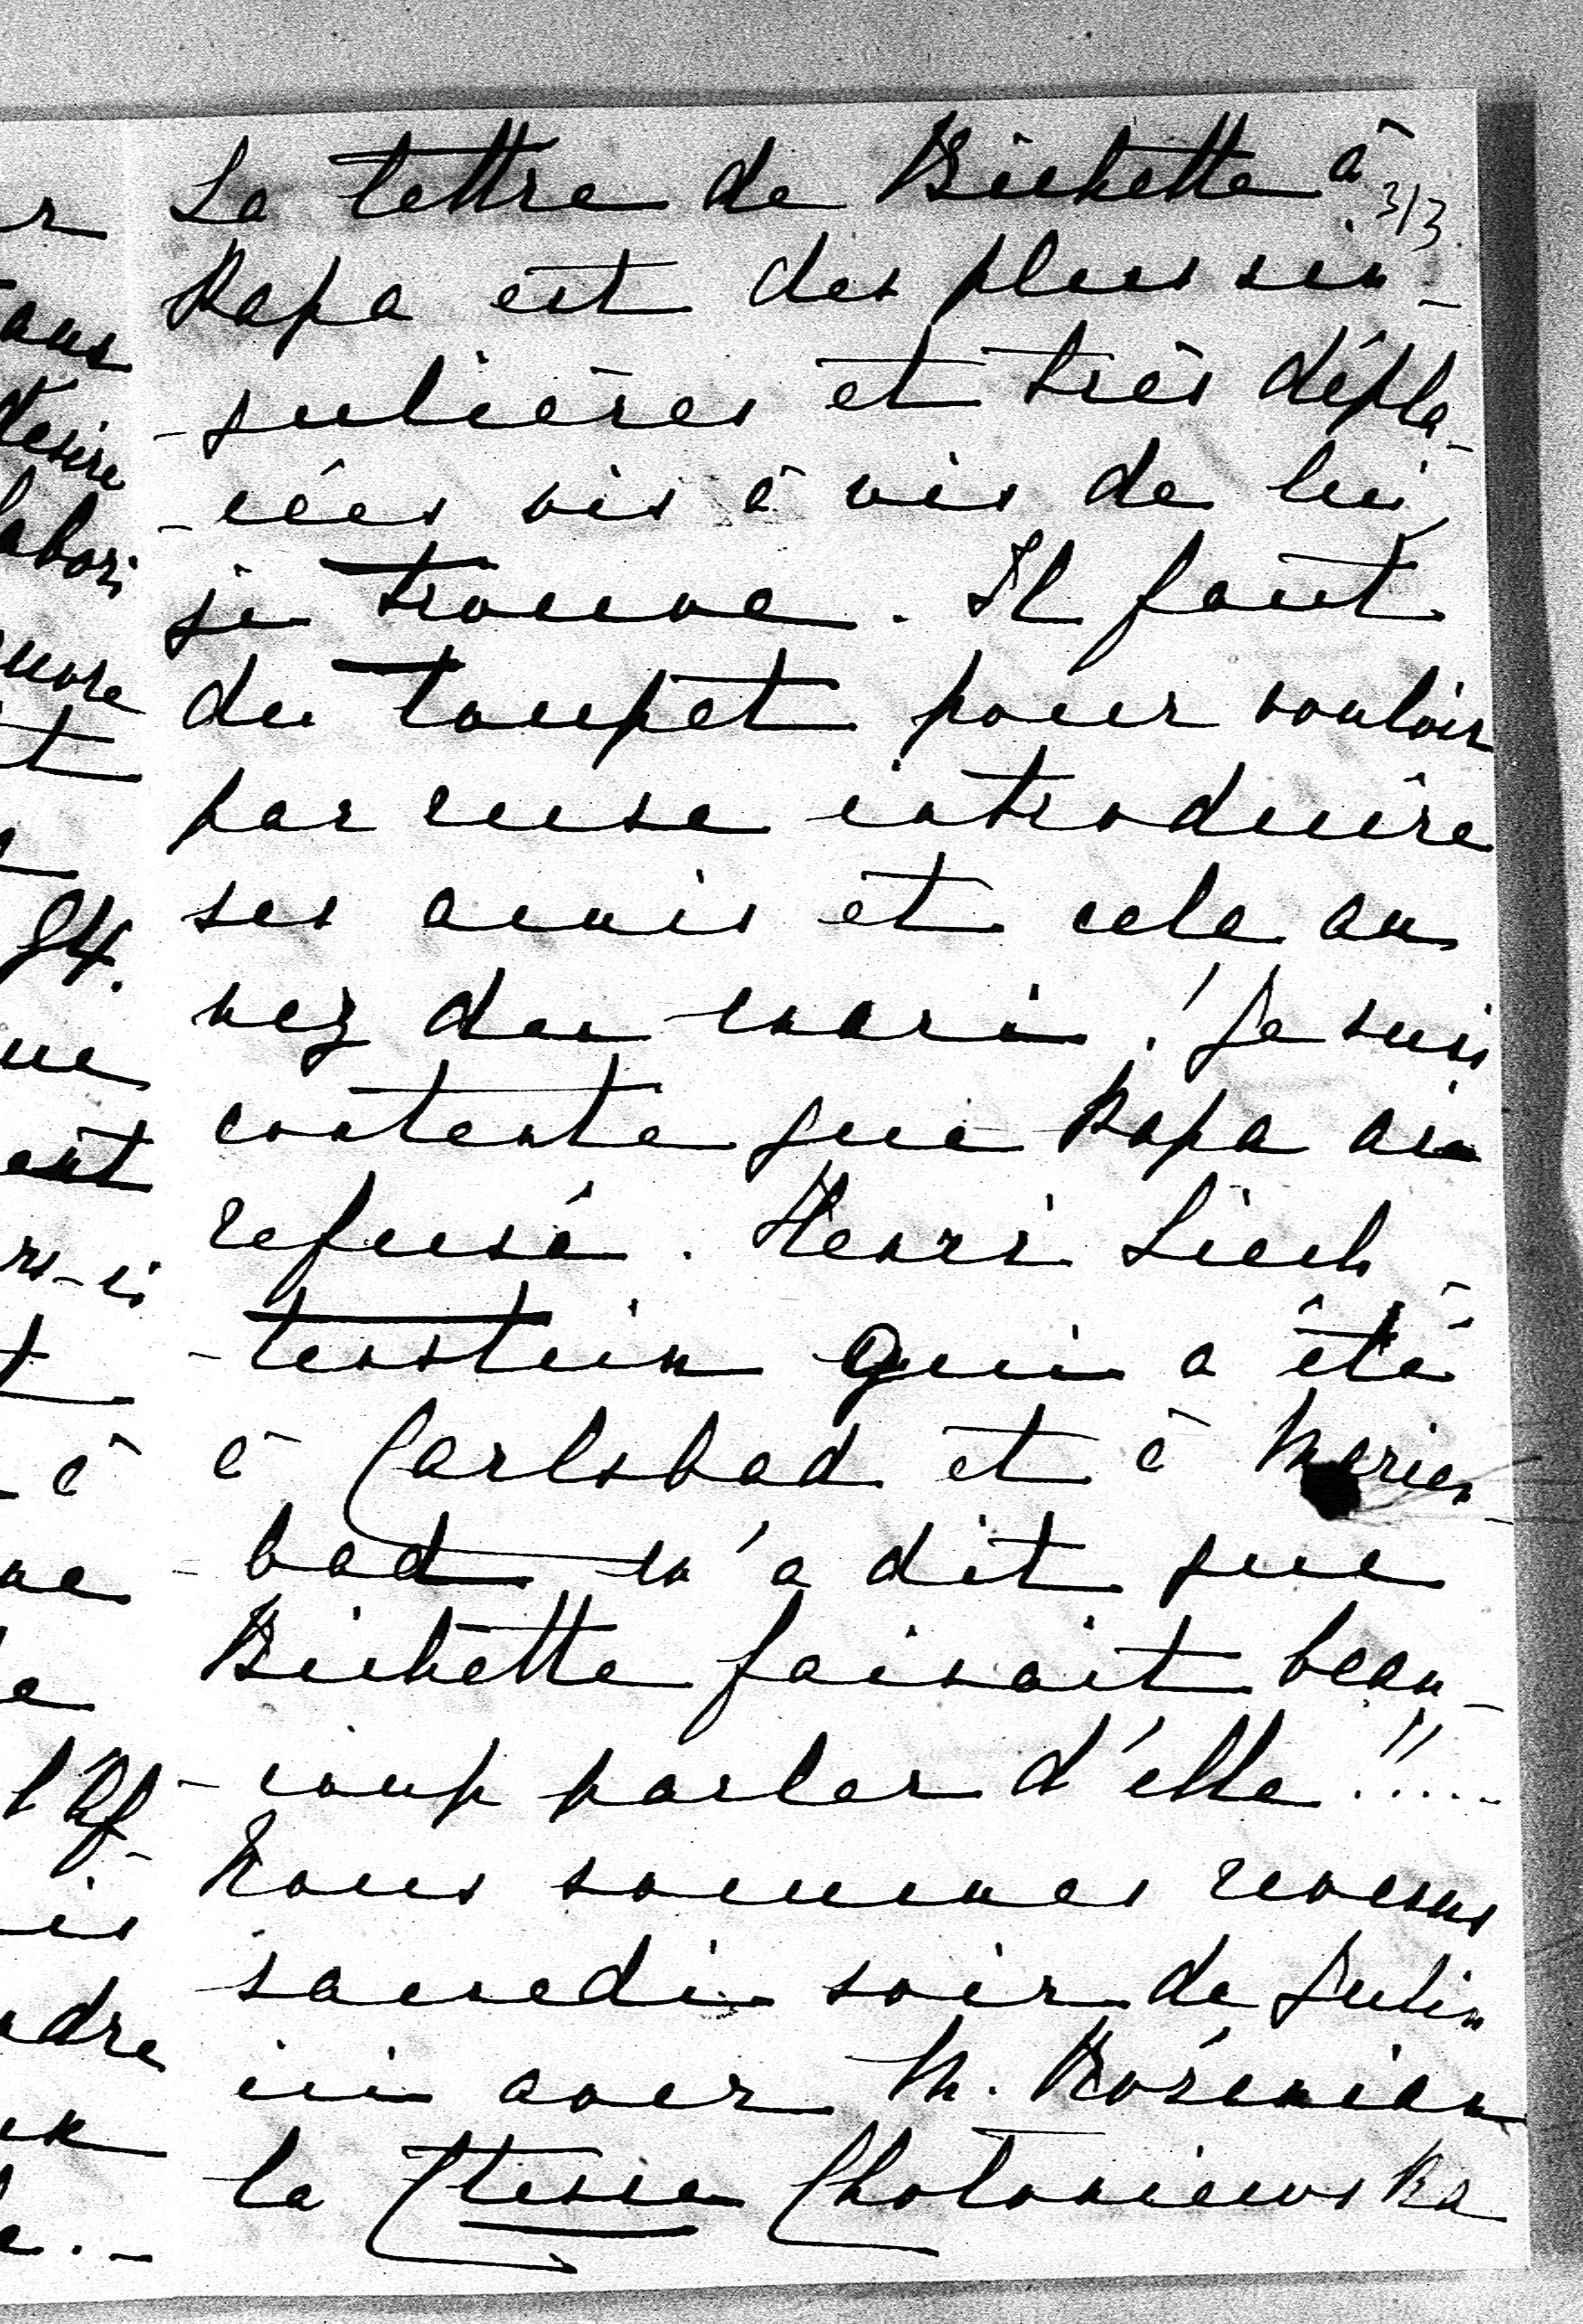 La lettre de Bichette à
3/3.
Papa est des plus sin-
-gulières et très dépla-
-cées vis à vis de lui,
je trouve. Il faut
du toupet pour vouloir
par ruse introduire
ses amis et cela au
nez du mari! Je suis
contente que Papa aie
refusé. Henri Liech-
-tenstein qui a été
à Carlsbad et à Marien-
-bad m'a dit que
Bichette faisait beau-
-coup parler d'elle!!....
Nous sommes revenus
samedi soir de
ici avec M.
la Ctesse Choloniewska